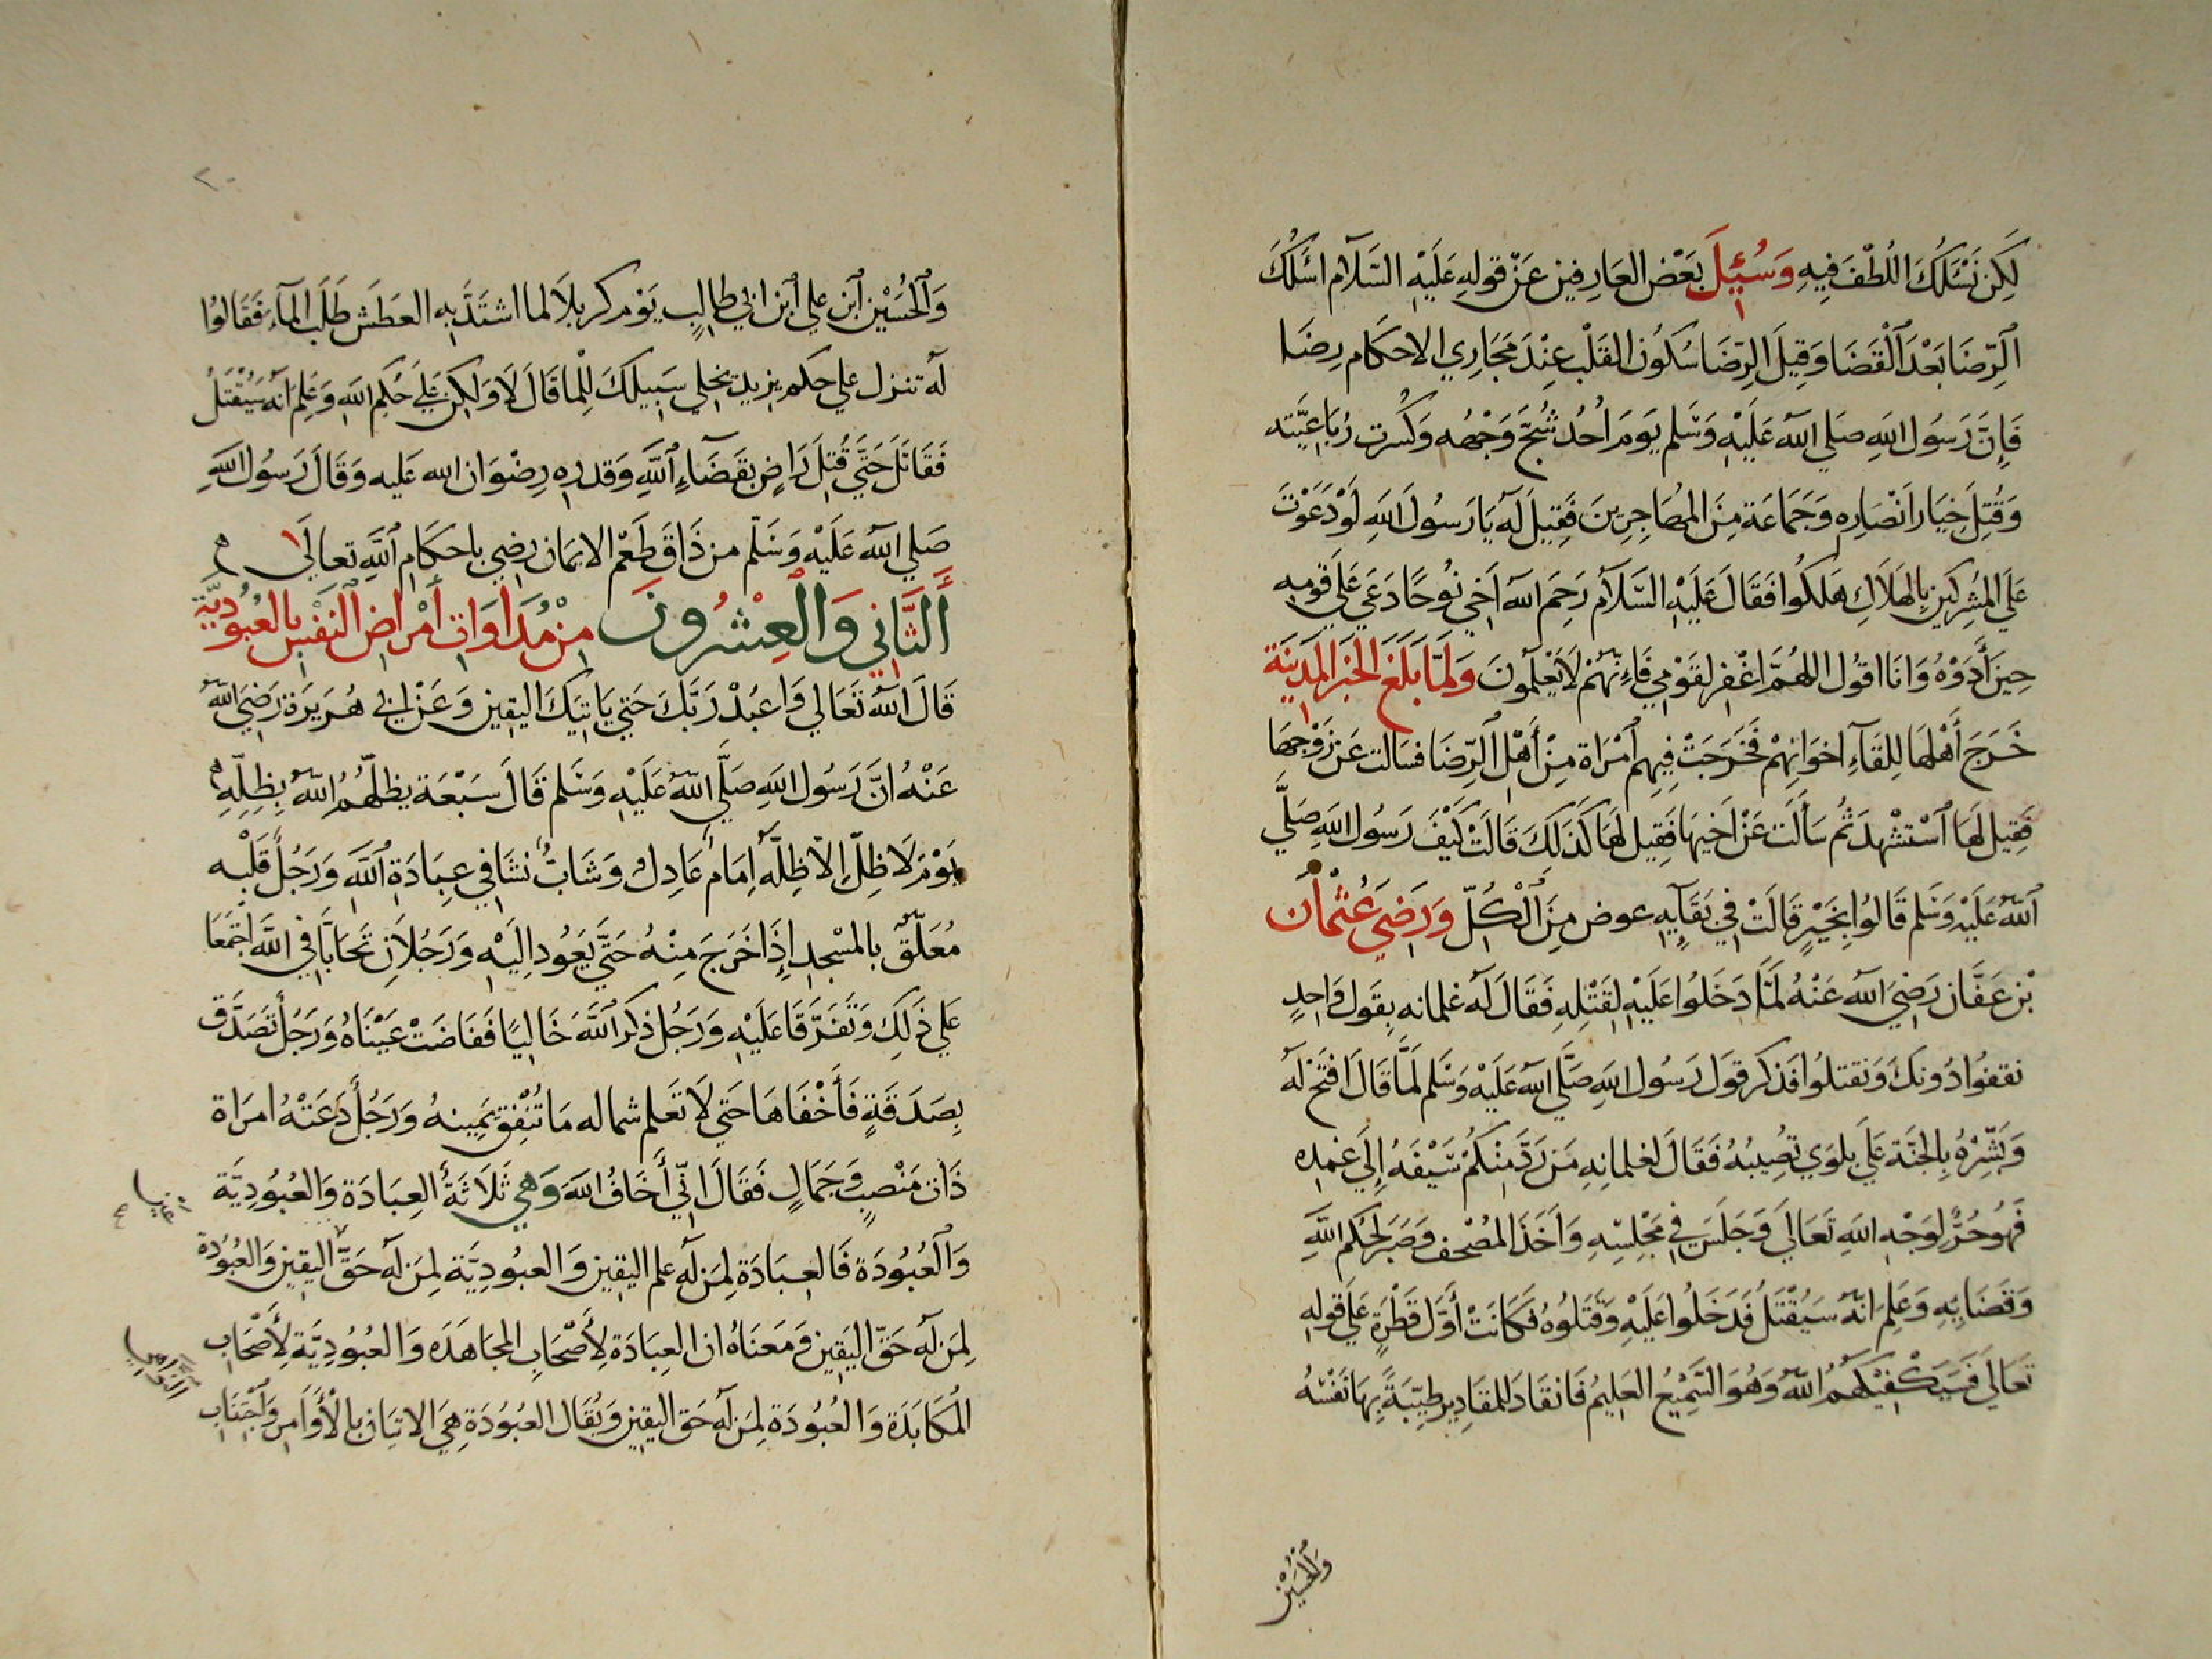 لَكِن نَسْئَلُكَ اللُطْفَ فِيهِ وَسُئِلَ بَعْض العَارِفين عَنْ قولِهِ عَلَيْهِ السَّلَام اسْئَلُكَ
الرِّضَا بَعْدَ الْقَضَا وَقِيلَ الرِّضَا سُكُون القَلْب عِنْدَ مَجَارِي الاحكام رِضًا
فَإِنَّ رَسُول اللهِ صَلي الله عَلَيْهِ وَسَّلم يَومَ أُحُد شُجَّ وَجْهُه وَكُسرت رُبَاعِيَّته
وَقُتِلَ خِيَار اَنْصَارِه وَجَمَاعَة مِنَ المُهَاجِرِينَ فَقِيلَ لَه يَا رَسُولَ اللهِ لَوْ دَعَوْتَ
عَلَى المُشركين بِالهَلَاكِ هَلكُوا فَقَالَ عَلَيْهِ السَّلَام رَحِمَ الله اَخِي نُوحًا دَعَي عَلَي قَومِهِ
حِينَ أَذَوْهُ وَانَا اقُول اللهُمَّ اغْفِر لقَوْمِي فَاِنَّهُمْ لَا يَعْلَمُونَ وَلَمَّا بَلَغَ الخَبَر المَدِينَة
خَرَجَ أَهْلهَا لِلقَآءِ اخوَانِهِمْ فَخَرَجَتْ فِيهِم امْرَاة مِنْ أَهْلِ الرِّضَا فسَالت عَن زَوْجهَا
فَقِيل لَهَا اسْتشْهِدَ ثُم سَأَلَت عَنْ اَخِيهَا فَقِيل لَهَا كَذَلِكَ قَالَتْ كَيْفَ رَسُول اللهِ صَلَّي
الله عَلَيْهِ وَسَلم قَالُوا بِخَيْرٍ قَالَتْ فِي بَقَآيِهِ عوض مِنَ الْكُلّ وَرَضِيَ عُثْمَان
بْن عَفَّان رَضِيَ الله عَنْهُ لَمَّا دَخَلُوا عَلَيْهِ لِقَتْلِهِ فَقَالَ لَه غلمانه بِقَول وَاحِدٍ
نقفُوا دُونكَ وَنقتلُوا فَذكر قَول رَسُول اللهِ صَلَّي الله عَلَيْهِ وَسَّلم لَمَّا قَالَ افْتَحْ لَه
وَبَشِّرْهُ بِالجَنَّة عَلَي بلوَي تُصِيبُهُ فَقَالَ لغلمَانِهِ مَن رَدَّ مِنْكُمْ سَيْفَهُ إِلَي غمدِه
فَهُوَ حُرٌّ لِوَجْهِ اللهِ تَعَالَي وَجَلَسَ فِي مَجْلِسِهِ وَاَخَذَ المُصْحَف وَصَبَرَ لحُكم اللهِ
وَقَضَايِهِ وَعَلِمَ انّه سَيُقْتَلُ فَدَخَلُوا عَلَيْهِ وَقَتَلُوهُ فَكَانَتْ أَوَّل قَطْرَةٍ عَلَي قَوله
تَعَالَي فَسَيَكْفِيْكَهُمُ اللهُ وَهُوَ السَّمِيْعُ العَلِيمُ فَانقَادَ للمقَادِير طَيِّبَةً بِهَا نَفْسُهُ
وَالحُسَيْن
٢٠
وَالحُسَيْن ابن علي ابن ابي طالِبٍ يَوْم كربلَا لما اشتَدَّ بِهِ العَطَش طَلَبَ المآء فَقَالُوا
لَه تنزل علي حكم يزيد يخلي سَبِيلكَ لِلْما قَالَ لَا وَلَكِن عَلَي حُكم اللهِ وَعَلِم انّه سَيُقْتَلُ
فَقَاتَلَ حَتَّي قُتِلَ رَاضٍ بقَضَآءِ اللهِ وَقدره رِضْوَان الله عَليه وَقَالَ رَسُول اللهِ
صَلي الله عَلَيْهِ وَسَلّم من ذَاقَ طَعْم الايمَان رضِي باحكَامِ اللهِ تعالَي
أَلثَّانِي وَالْعِشْرُونَ مِنْ مُدَاوَاتِ أَمْرَاضِ النَفْسِ بِالعُبُودِيَّةِ
قَالَ الله تَعَالي وَاعبُدْ رَبَّكَ حَتي يَاتيَكَ اليَقِين وَعَنْ ابي هُرَيرَة رَضِيَ الله
عَنْهُ انَّ رَسُول اللهِ صَلَّي الله عَلَيْهِ وَسَّلم قَالَ سَبْعَة يظلُّهُمُ الله بِظِلِّهِ
يَوْمَ لَا ظِلّ إِلّا ظِلّه اِمَام عَادِل وَشَابٌ نشَا فِي عِبَادَةِ اللهِ وَرَجُلٌ قَلْبه
مُعَلّق بالمسْجِد اِذَا خَرَجَ مِنْهُ حَتَّي يَعُود اِلَيْهِ وَرَجُلَانِ تَحَابَّا فِي اللهِ اجْتَمَعَا
عَلَي ذَلِكَ وَتَفَرَّقَا عَلَيْهِ وَرَجُل ذكر اللهَ خَالِيًا فَفَاضَتْ عَيْنَاهُ وَرَجُل تَصَدَّق
بِصَدَقَةٍ فَأَخْفَاهَا حَتي لَا تَعلم شماله مَا تُنْفِق يَمِينهُ وَرَجُلٌ دَعَتْهُ امرَاة
ذَات مَنْصِبٍ وَجَمَالٍ فَقَالَ اِنِّي أَخَافُ اللهَ وَهِي ثَلَاثَةُ العِبَادَة وَالعُبُودِيَّة
وَالعُبُودَة فَالعِبَادَة لِمَن لَه علم اليَقِين وَالعبُودِيَّة لِمَن لَه حَقّ اليَقِين وَالعُبُودة
لِمَن لَه حَقّ اليَقِين وَمَعنَاهُ ان العِبَادَة لِأَصْحَابِ المجَاهَدَه وَالعُبُودِيَّة لِأَصْحَابِ
المُكَابَدَة وَالعُبُودَة لِمَن لَه حَق اليَقِين وَيُقَال العُبُودَة هِيَ الاتيَان بالْأَوَامِر وَاجْتِنَاب